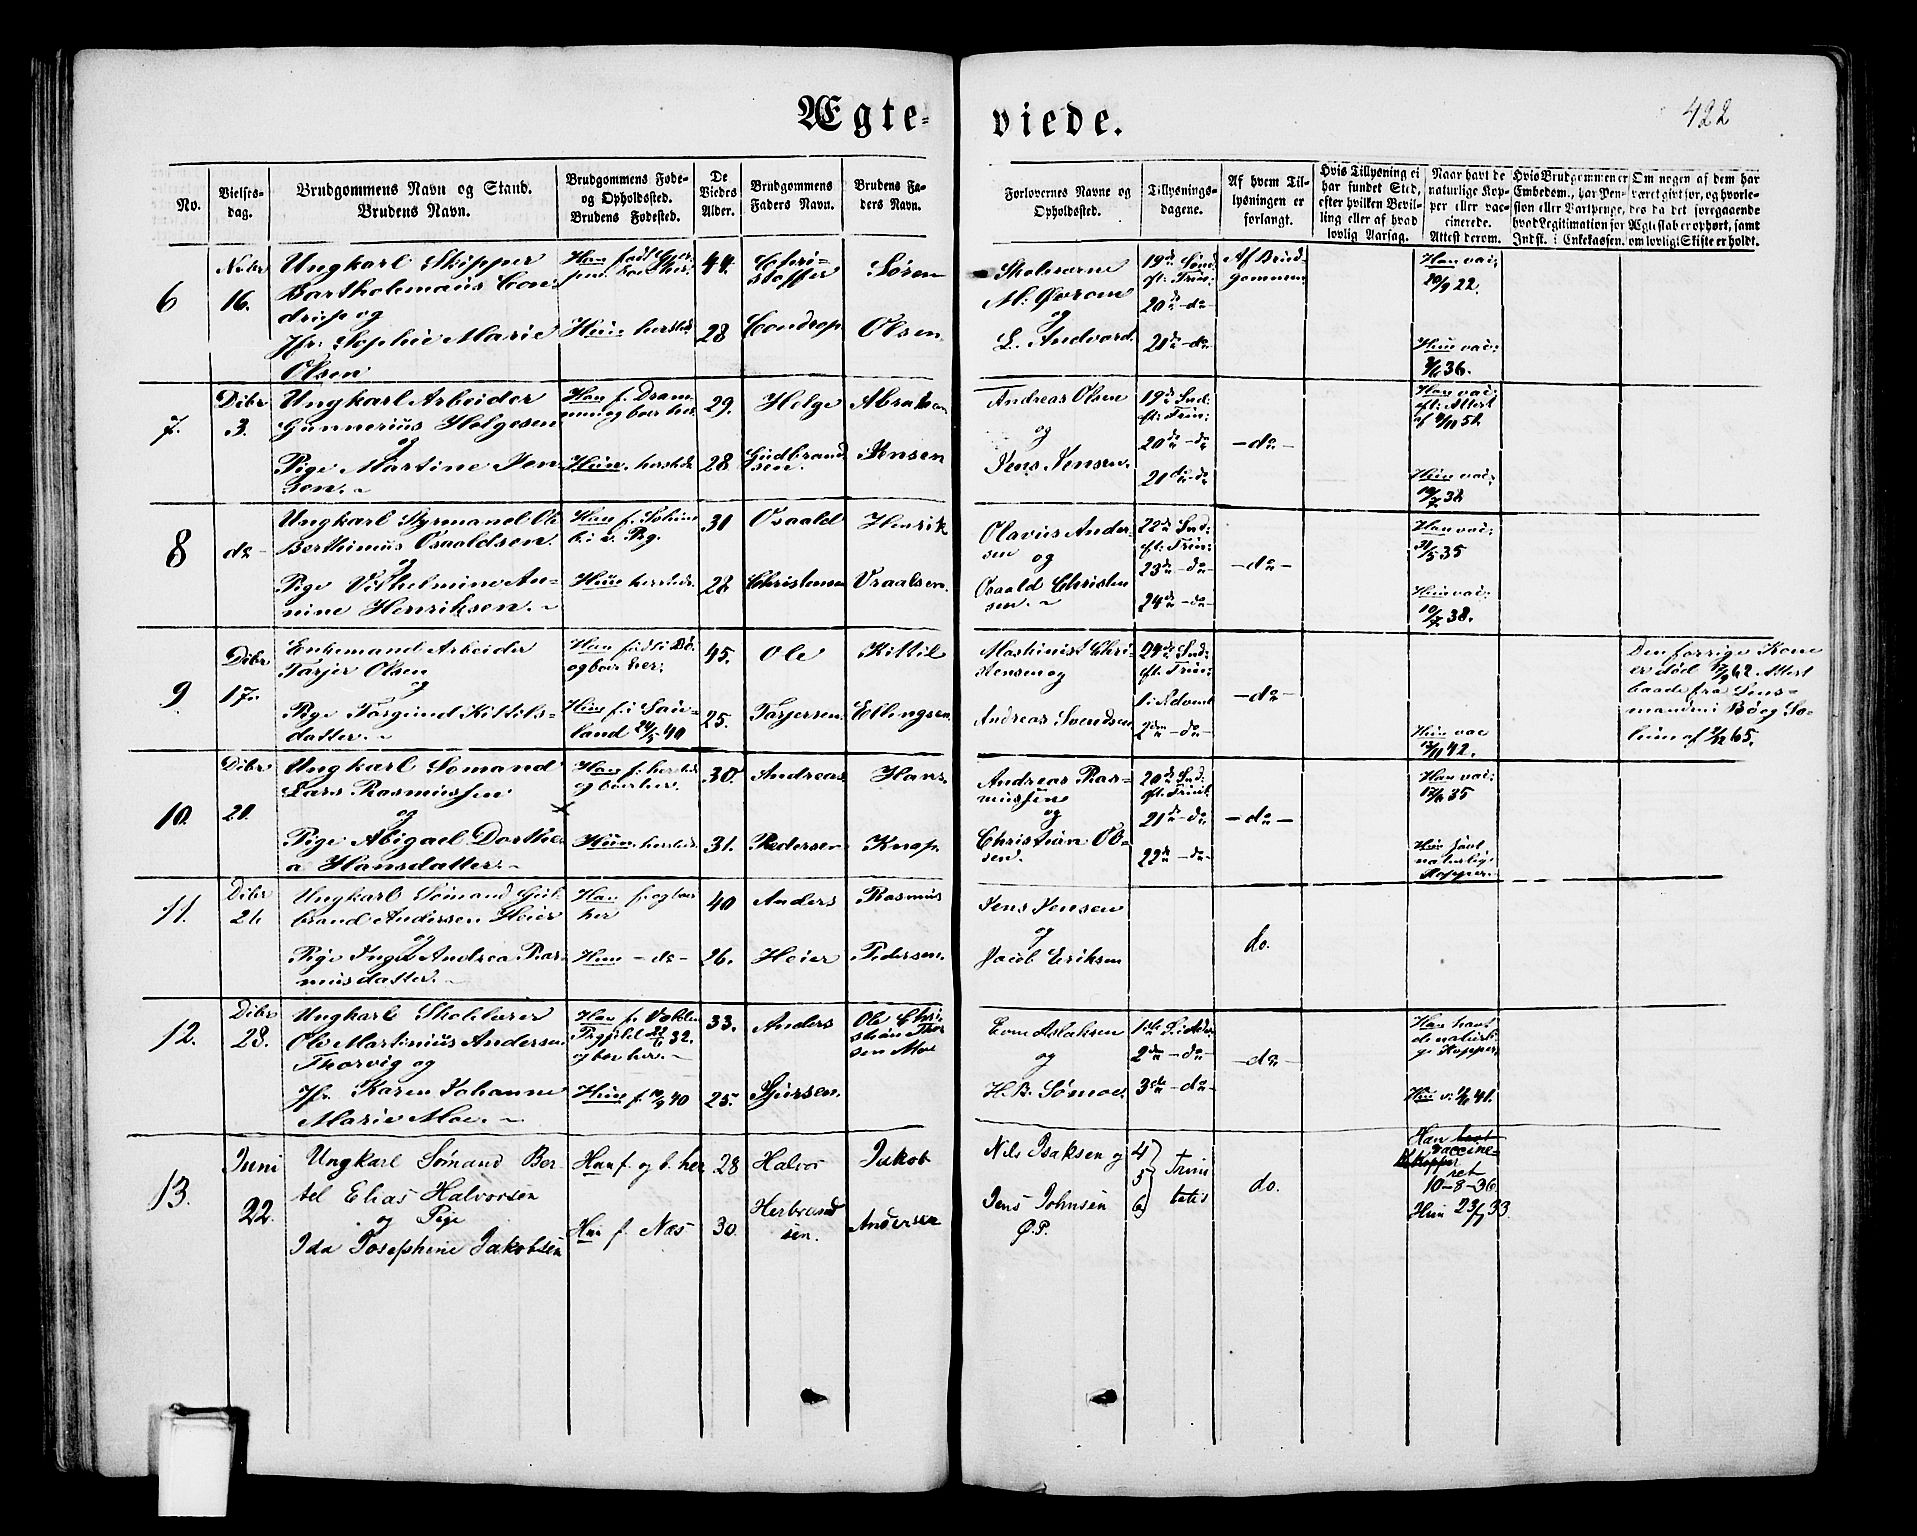 Ægte-
viede.
422
No.
Vielses-
dag.
Brudgommens Navn og Stand.
Brudens Navn.
Brudgommens Føde-
og Opholdssted.
Brudens Fødested.
De
Viedes
Alder.
Brudgommens
Faders Navn.
Brudens Fa-
ders Navn.
Forlovernes Navne og
Opholdssted.
Tillysnings-
dagene.
Af hvem Til-
lysningen er
forlangt.
Hvis Tillysning ei
har fundet Sted,
efter hvilken Bevil-
ling eller af hvad
lovlig Aarsag.
Naar havt de
naturlige Kop-
per eller vac-
cinerede.
Attest derom.
Hvis Brudgommen er
Embedsm., har Pen-
sion eller Vartpenge,
hvad Legitimation for
Indsk. i Enkekassen.
Om nogen af dem har
været gift før, og hvorle-
des da det foregaaende
Ægteskab er ophørt, samt
om lovligt Skifte er holdt.
6
Nvbr
16.
Ungkarl Skipper
Bartholemæus Con-
drup og
Jfr: Sophie Marie
Olsen
Hun herstds
44.
28
Chri-
stoffer
Condrop.
Søren
Olsen
L. Andvord.
19de Sønd
eft: Trin:
20de -do-
21de -do-
Af Brud-
gommen
Han vac:
22.
Hun vac:
36.
7.
Dcbr
3.
Ungkarl Arbeider
Gunnerius Helgesen
og
Pige Martine Jen-
sen. -
Han f. Dram-
men og boer her.
Hun herstds
29.
28
Helge
Gudbrand-
sen.
Abraham
Jensen
Andreas Olsen
og
Jens Jensen.
19de Snd.
eft: Trin:
20de -do-
21de -do-
-do-
Han vac:
eft: Attest
af
Hun vac:
38
8
do-
Ungkarl Styrmand Ole
Berthinius Osvaldsen
og
Pige Vilhelmine An-
nine Henriksen. -
Hun herstds.
31
28
Osvald
Christensen
Henrik
Vraalsen.
Olavus Ander-
sen
og
Osvald Christen
sen. -
22de Snd.
eft: Trin:
23de -do-
24de -do-
-do-
Han vac:
35
Hun vac:
38.
9
Dcbr
17.
Enkemand Arbeider
Tarjer Olsen
og
Pige Torgund Kittils-
datter. -
Han født i Bø
og boer her:
Hun f. i Sau-
land 24/5 40
45.
25.
Ole
Tarjersen.
Kittil
Ellingsen.
Maskinist Chri-
stensen og
Andreas Svendsen.
24de Snd.
eft: Trin:
1. i Advent
2den -do-
-do-
Hun vac
42.
Den forrige Kone
er død 62. Attest
baade fra Lens-
manden i Bø og So-
lum af 65.
10.
Dcbr
21.
Ungkarl Sømand
Lars Rasmussen
og
Pige Abigael Dorthe-
a Hansdatter. -
Han f: herstds
og boer her.
Hun herstds.
30.
31.
Andreas
Pedersen
Hans
Knap.
Andreas Ras-
mussen
og
Christian Ol-
sen.
20de Snd.
eft: Trinit.
21de -do-
22de -do-
-do-
Han vac:
35
Hun havt
naturlige
Kopper.
11.
Dcbr
26
Ungkarl Sømand Gul-
brand Andersen Heier
og
Pige Inger Andrea Ras-
musdatter. -
Han f. og boer
her
Hun -do-
40
26.
Anders
Heier
Rasmus
Pedersen.
Jens Jensen
og
Jacob Eriksen
do.
12.
Dcbr
28.
Ungkarl Skolelærer
Ole Martinius Andersen
Thorvig og
Jfr. Karen Johanne
Marie Moe. -
og boer her. -
Hun f. 40
33.
25.
Anders
Sjursen.
Ole Chri-
stian Thor
sen Moe
Even Aslaksen
og
H. B. Sømoe.
1ste S. i Adv.
2den -do-
3die -do-
-do-
Han havt
de naturli-
ge Kopper.
Hun v. 41.
13.
Juni
22.
Ungkarl Sømand Ber
tel Elias Halvorsen
og Pige
Ida Josephine Jakobsen
Han f. og b. her
Hun f. Næs
28
30.
Halvor
Herbrand
sen.
Jakob
Andersen
Nils Isaksen og
Jens Johnsen
Ø.P.
4
5
6
Trini
tatis
do.
Han havt
Kopper vaccine-
ret
10-8-36
Hun 33.